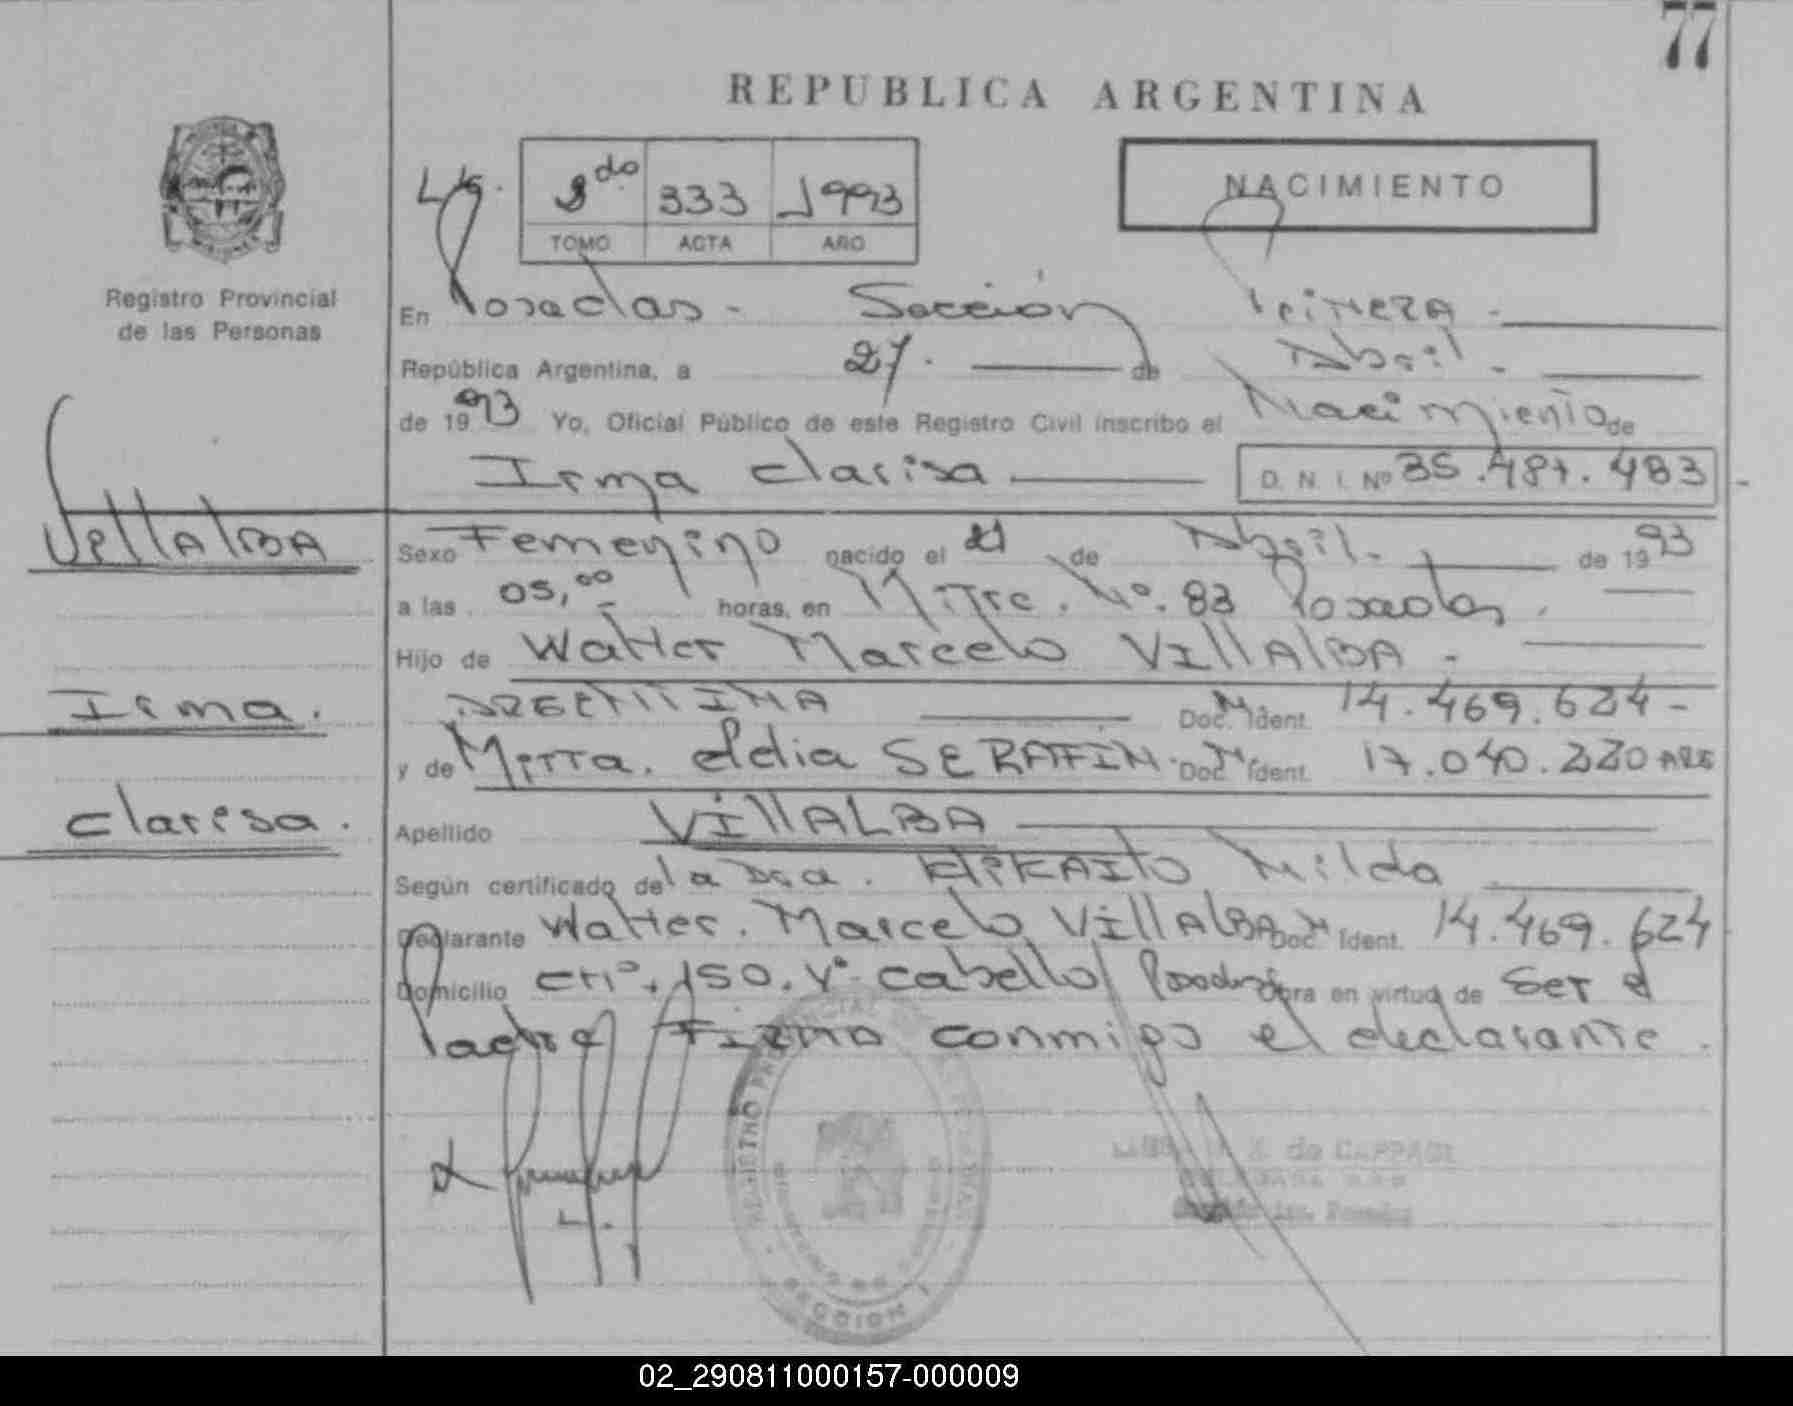 77
REPUBLICA ARGENTINA
333 1993
TOMO ACTA AÑO
NACIMIENTO
Registro Provincial
de las Personas
En Posadas - Sección Primera -
República Argentina, a 27. de Abril -
de 1993 Yo, Oficial Público de este Registro Civil inscribo el Nacimiento de
Irma Clarisa D. N. I. Nº 35.487.483 -
Villalba
Irma.
Clarisa.
Sexo Femenino nacido el 21 de Abril. de 1993
a las 05,00 horas, en Mitre. Nº. 83 Posadas.
Hijo de Walter Marcelo VillAlBA -
ARGENTINA Doc. Ident. 14.469.624 -
y de Mirta. Eldia SERAFIN. Doc. Ident. 17.040.220 ARG
Apellido VillALBA
Según certificado de la Dra. Nilda
Declarante Walter. Marcelo VillAlBA Doc. Ident. 14.469.624
Domicilio 150. Vº Cabello Posadas Obra en virtud de Ser el
Padre Firma conmigo el declarante.
REGISTRO PROVINCIAL DE LAS PERSONAS
SECCION 1
de CAPPAGLI
02_290811000157-000009